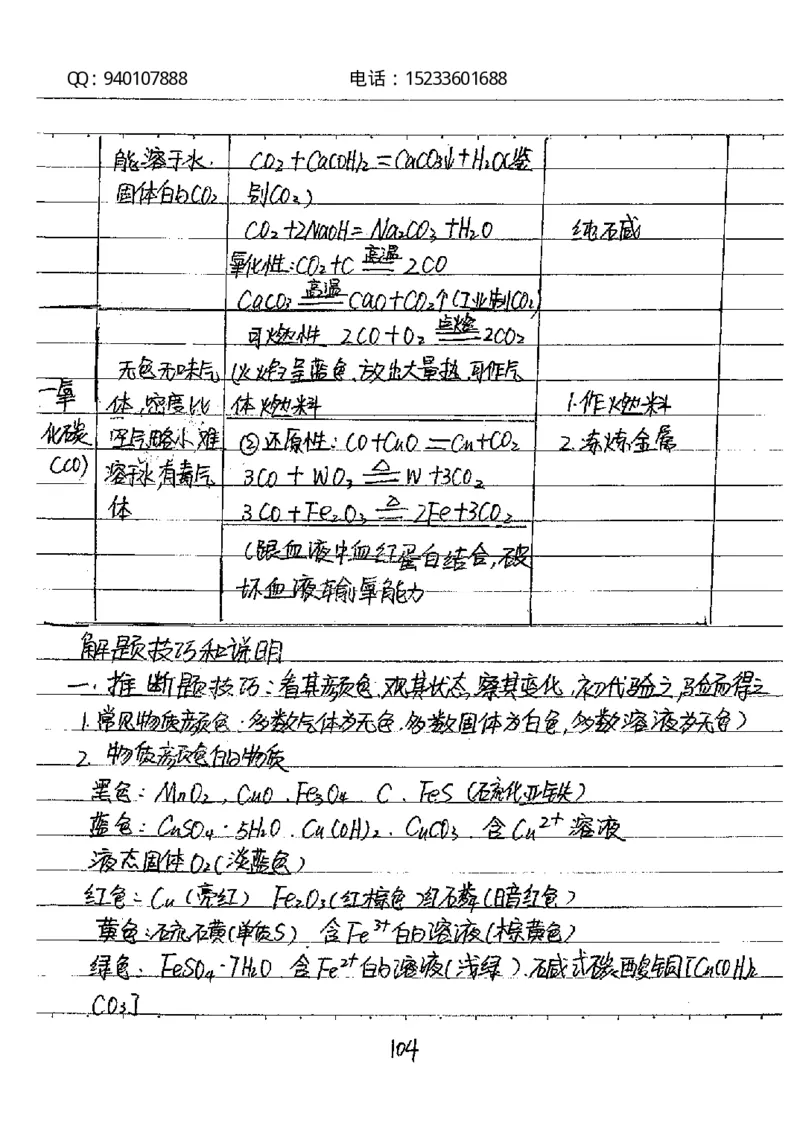 QQ：940107888 电话：15233601688
能溶于水. CO₂+Ca(OH)₂=CaCO₃↓+H₂O(鉴
固体的CO₂ 别CO₂)
CO₂+2NaOH=Na₂CO₃+H₂O 纯石碱
氧化性:CO₂+C 高温 2CO
CaCO₃ 高温 CaO+CO₂↑(工业制CO₂)
可燃性 2CO+O₂ 点燃 2CO₂
无色无味气 (火焰呈蓝色,放出大量热,可作气
一氧 体,密度比 体燃料 1.作燃料
化碳 空气略小,难 ②还原性：CO+CuO=Cu+CO₂ 2.冻炼金属
(CO) 溶于水,有毒气 3CO+WO₃ △ W+3CO₂
体 3CO+Fe₂O₃ △ 2Fe+3CO₂
(跟血液中血红蛋白结合,破
坏血液输氧能力
解题技巧和说明
一.推断题技巧：看其颜色,观其状态,察其变化,初代验之,验而得之
1.常见物质颜色：多数气体为无色.多数固体为白色,多数溶液为无色)
2.物质颜色的物质
黑色：MnO₂、CuO、Fe₃O₄ C、FeS(硫化亚铁)
蓝色：CuSO₄·5H₂O、Cu(OH)₂、CuCO₃、含Cu²⁺溶液
液态固体O₂(淡蓝色)
红色：Cu(亮红) Fe₂O₃(红棕色)红磷(暗红色)
黄色：硫磺(单质S) 含Fe³⁺的溶液(棕黄色)
绿色：FeSO₄·7H₂O 含Fe²⁺的溶液(浅绿)、碱式碳酸铜[Cu(OH)₂
CO₃]
104